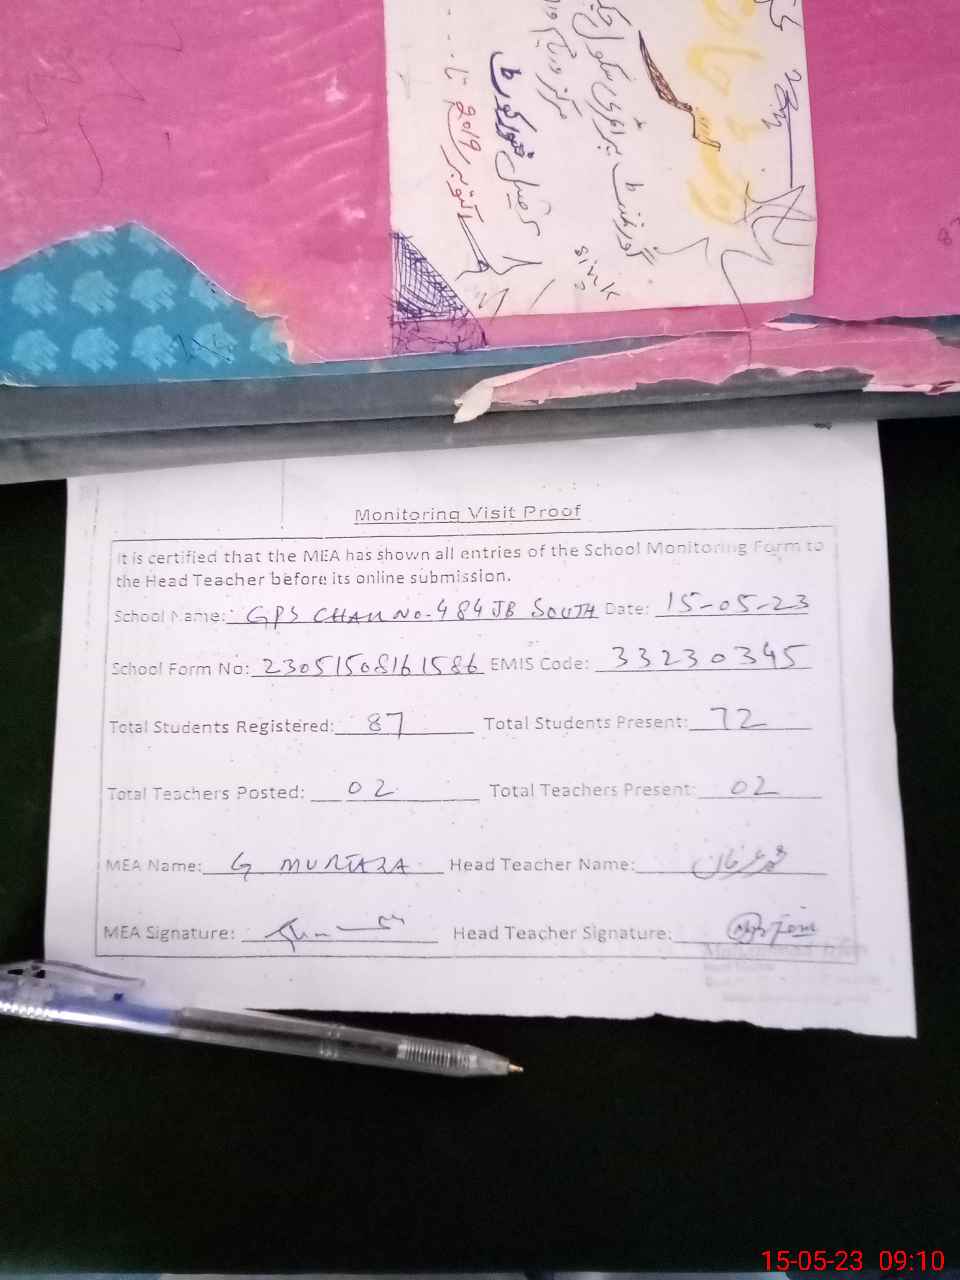 گورنمنٹ پرائمری سکول
مرکز
تحصیل شورکوٹ
اکتوبر 2019 تا
Monitoring Visit Proof
It is certified that the MEA has shown all entries of the School Monitoring Form to
the Head Teacher before its online submission.
School Name: GPS CHAK No. 484 JB SOUTH Date: 15-05-23
School Form No: 23051508161586 EMIS Code: 33230345
Total Students Registered: 87 Total Students Present: 72
Total Teachers Posted: 02 Total Teachers Present: 02
MEA Name: G MURTAZA Head Teacher Name:
MEA Signature: Head Teacher Signature:
15-05-23 09:10